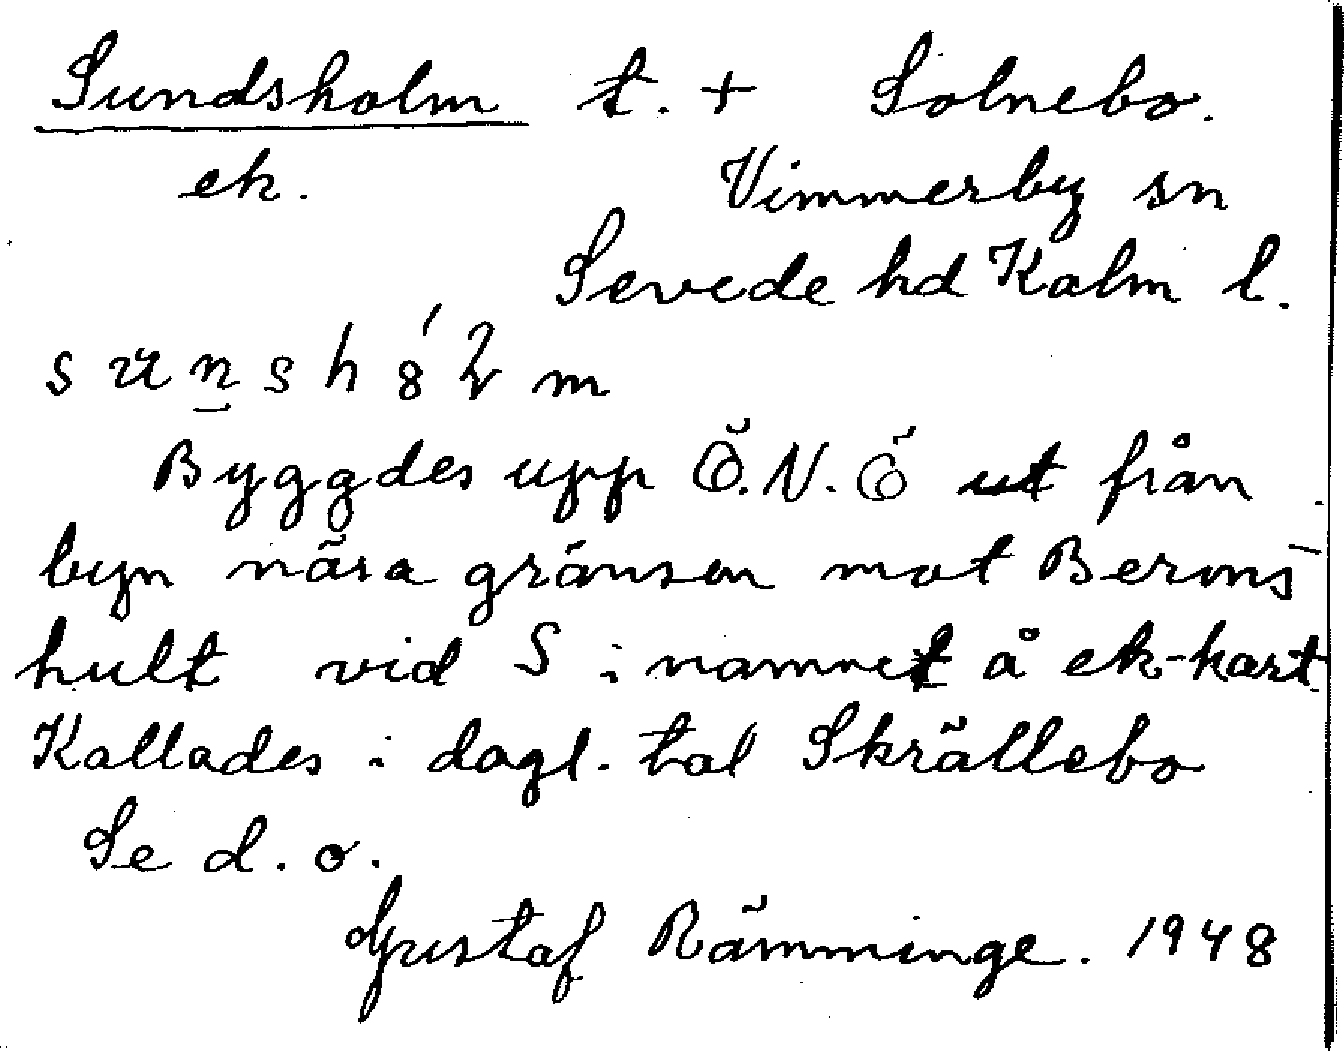 Sundsholm t. + Solnebo.
ek. Vimmerby sn
Sevede hd Kalm l.
Byggdes upp Ö.N.Ö ut från
byn nära gränsen mot Berons-
hult vid S i namnet å ek-kart
Kallades i dagl. tal Skrällebo
Se d. o.
Gustaf Rämminge. 1948